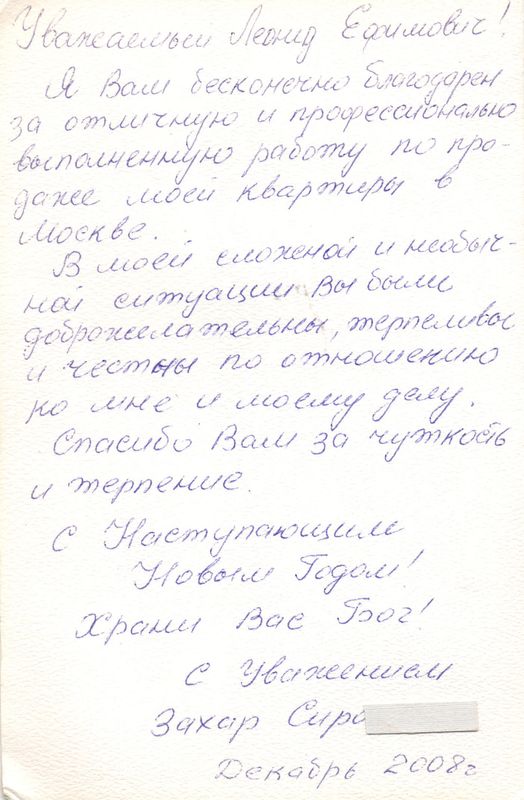 Уважаемый Леонид Ефимович!
Я Вам бесконечно благодарен
за отличную и профессионально
выполненную работу по про-
даже моей квартиры в
Москве.
В моей сложной и необыч-
ной ситуации Вы были
доброжелательны, терпеливы
и честны по отношению
ко мне и моему делу.
Спасибо Вам за чуткость
и терпение.
С Наступающим
Новым Годом!
Храни Вас Бог!
С Уважением
Захар Сиро
Декабрь 2008г